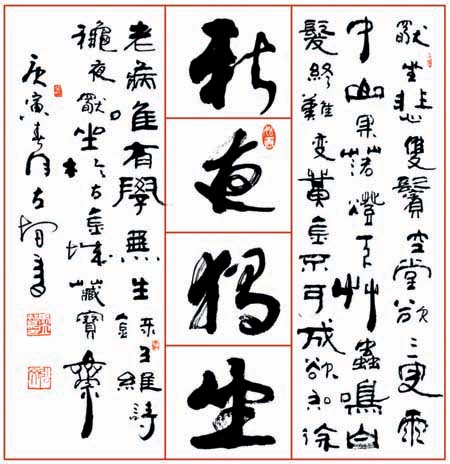 獨坐悲雙鬢空堂欲二更雨
中山果落燈下艸蟲鳴白
髮終難變黄金不可成欲知除
秋
夜
獨
坐
老病唯有學無生録王維詩
穐夜獨坐于古金城藏寶齋
庚寅春月古垣書